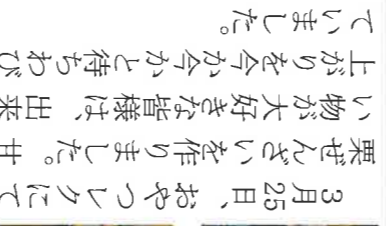 3月25日、おやつレクにて
栗ぜんざいを作りました。甘
い物が大好きな皆様は、出来
上がりを今か今かと待ちわび
ていました。